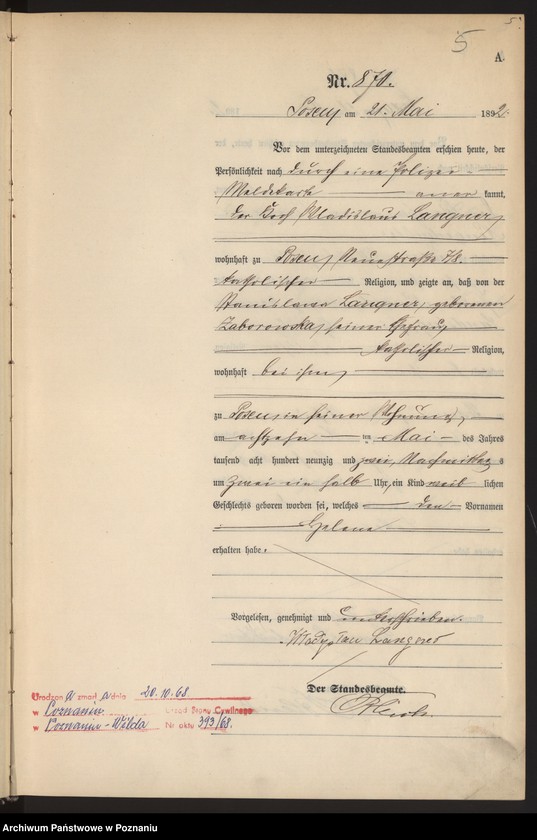 5.
5
A.
Nr. 870.
Posen am 21. Mai 1892.
Vor dem unterzeichneten Standesbeamten erschien heute, der
Persönlichkeit nach durch eine Polizei
Meldekarte anerkannt,
der Koch Wladislaus Langner,
wohnhaft zu Posen, Neuestraße 7/8.
katholischer Religion, und zeigte an, daß von der
Stanislawa Langner, geborenen
Zaborowska, seiner Ehefrau,
katholischer Religion,
wohnhaft bei ihm,
zu Posen, in seiner Wohnung,
am achtzehn ten Mai des Jahres
tausend acht hundert neunzig und zwei, Nachmittags
um zwei ein halb Uhr, ein Kind weib lichen
Geschlechts geboren worden sei, welches den Vornamen
Helene
erhalten habe.
Vorgelesen, genehmigt und unterschrieben.
Władysław Langner
Der Standesbeamte.
Urodzona zmarła dnia 20.10.68.
w Poznaniu Urząd Stanu Cywilnego
w Poznaniu-Wilda Nr aktu 393/68.
Archiwum Państwowe w Poznaniu